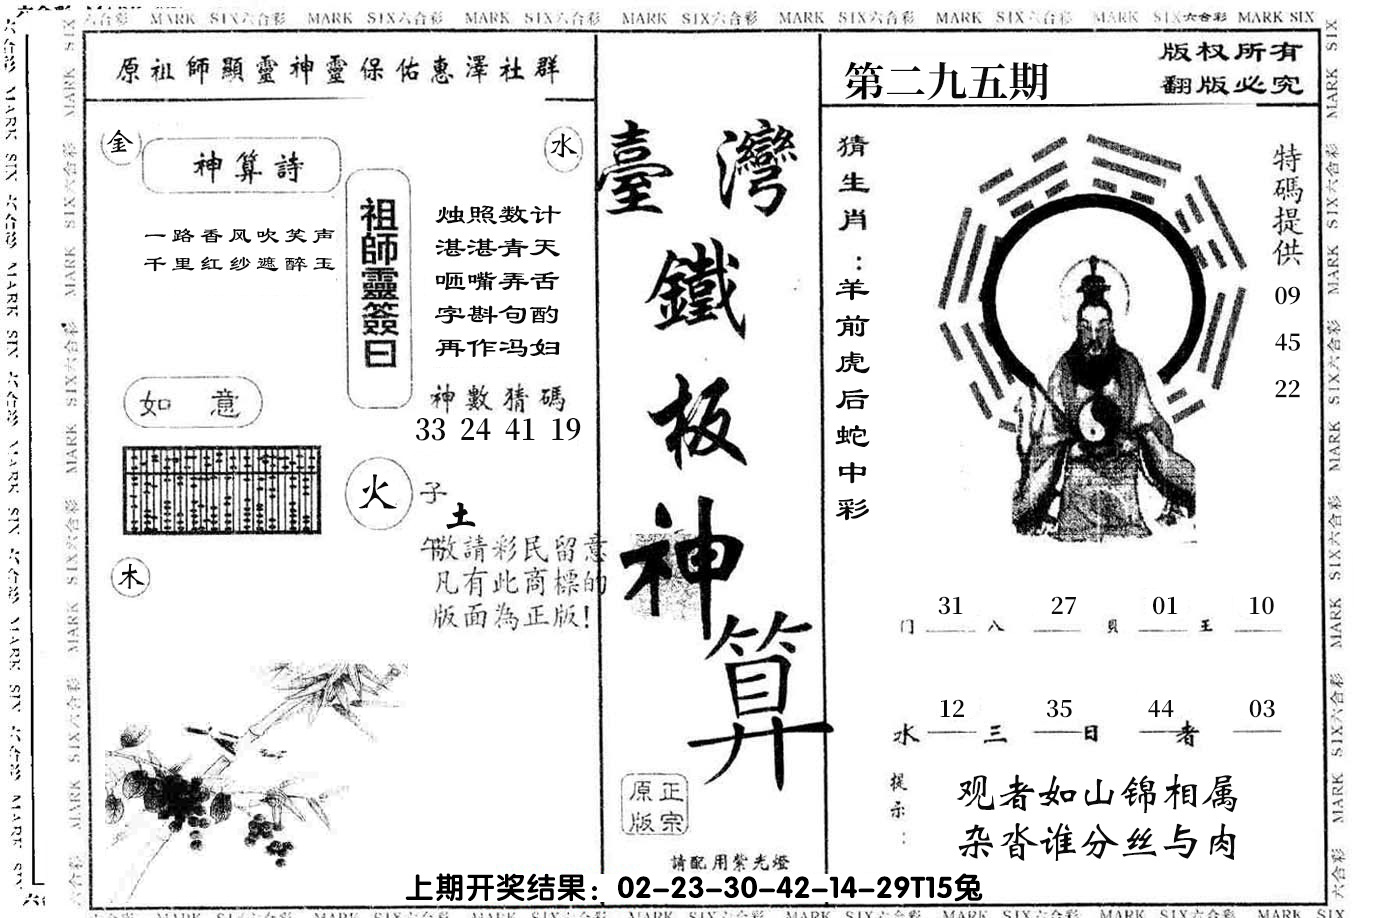 MARK SIX六合彩 MARK SIX六合彩 MARK SIX六合彩 MARK SIX六合彩 MARK SIX六合彩 MARK SIX六合彩 MARK SIX六合彩 MARK SIX
原祖師顯靈神靈保佑惠澤社群
金
神算詩
水
一路香风吹笑声
千里红纱遮醉玉
祖師靈簽曰
烛照数计
湛湛青天
咂嘴弄舌
字斟句酌
再作冯妇
神數猜碼
33 24 41 19
如 意
火
子
土
午
敬請彩民留意
凡有此商標的
版面為正版!
木
臺灣
鐵
板
神
算
正宗
原版
請配用紫光燈
第二九五期
版权所有
翻版必究
猜生肖:羊前虎后蛇中彩
特碼提供
09
45
22
31 27 01 10
门 八 貝 王
12 35 44 03
水 三 日 者
提示:
观者如山锦相属
杂沓谁分丝与肉
上期开奖结果：02-23-30-42-14-29T15兔